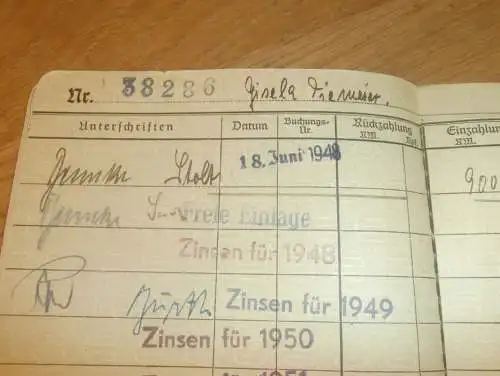 Nr. 38286 Gisela Diemeier.
Unterschriften Datum Buchungs-Nr. Rückzahlung RM. Rpf. Einzahlung RM.
Stolt 18. Juni 1948 900
Freie Einlage
Zinsen für 1948
Zinsen für 1949
Zinsen für 1950
1951